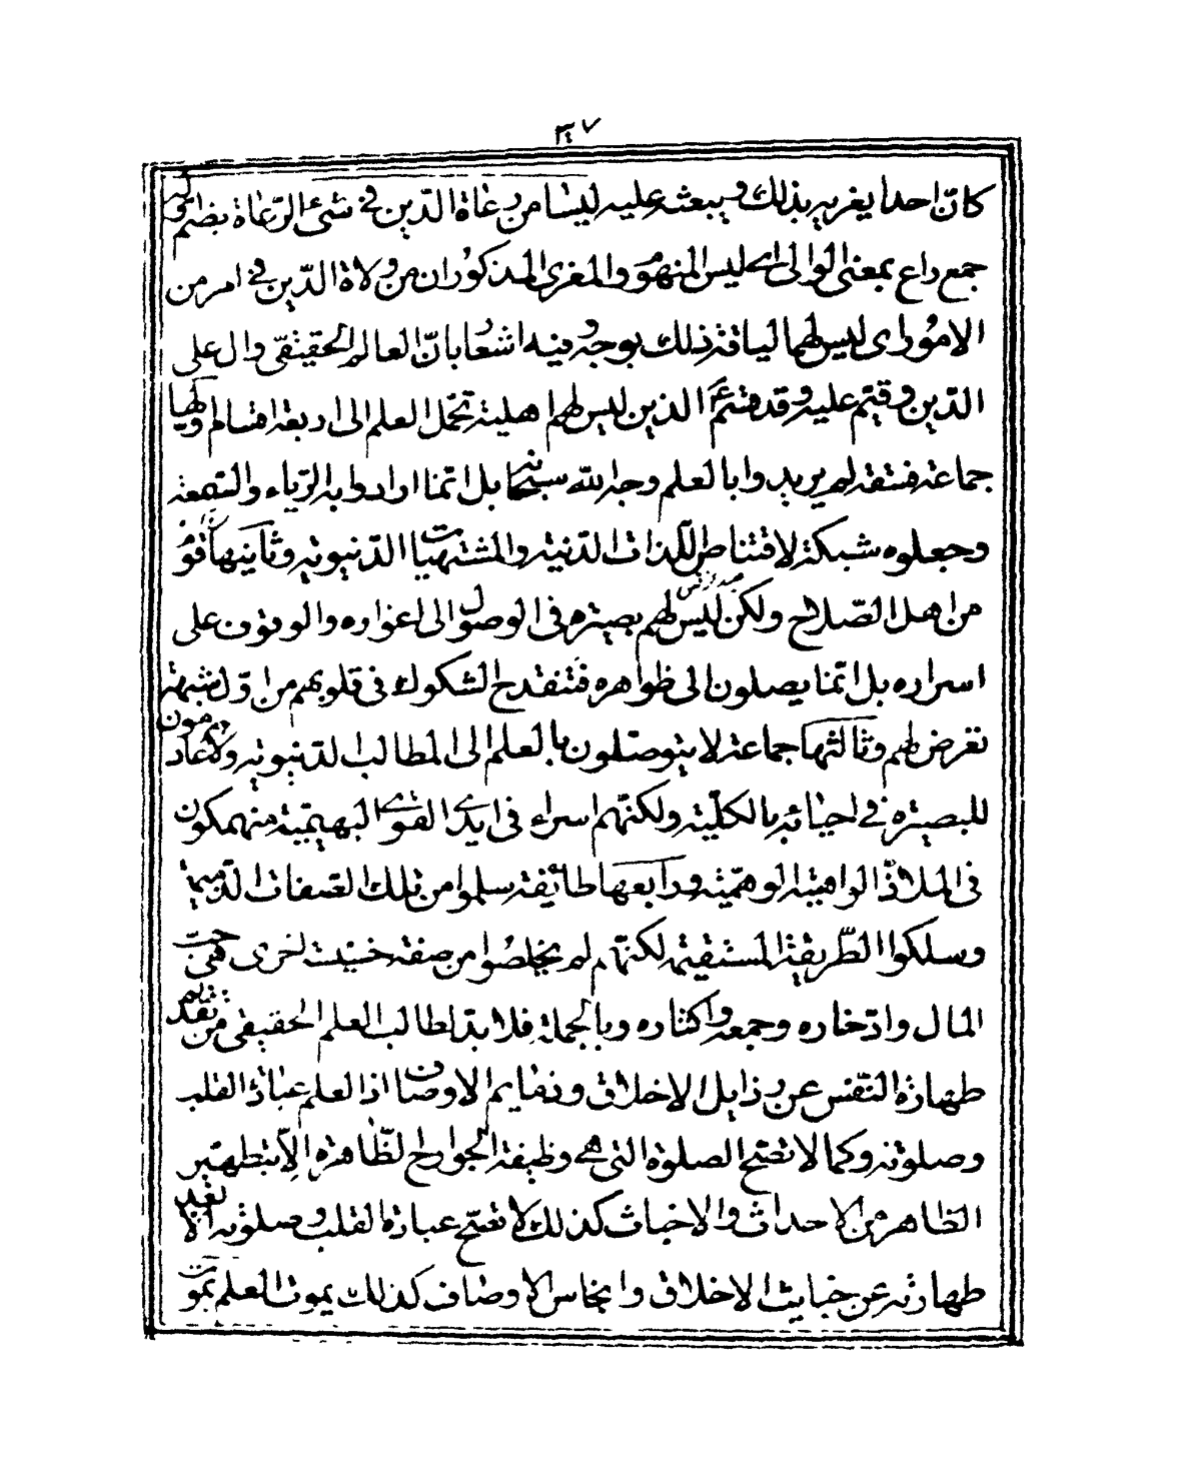 ٣٧
كانّ احدا يغريه بذلك ويبعثه عليه ليسا من رعاة الدّين فى شئ الرّعاة بضم اوله
جمع راع بمعنى الوالى اى ليس المنهوم والمغرى المذكوران من ولاة الدّين فى امر من
الامور اى ليس لهما لياقة ذلك بوجه وفيه اشعار بانّ العالم الحقيقى وال على
الدّين وقيّم عليه وقد قسّم الذين ليس لهم اهلية تحمّل العلم الى اربعة اقسام اولها
جماعة فسقة لم يريدوا بالعلم وجه الله سبحانه بل انّما ارادوا به الرّياء والسّمعة
وجعلوه شبكة لاقتناص اللّذات الدّنية والمشتهيات الدّنيوية وثانيها قوم
من اهل الصّلاح ولكن ليس لهم بصيرة فى الوصول الى اغواره والوقوف على
اسراره بل انّما يصلون الى ظواهره فتنقدح الشكوك فى قلوبهم من اوّل شبهة
تعرض لهم وثالثها جماعة لا يتوصّلون بالعلم الى المطالب الدّنيوية ولا عادمون
للبصيرة فى احيائه بالكلّية ولكنّهم اسراء فى ايدى القوى البهيميّة منهمكون
فى الملاذّ الواهية الوهميّة ورابعها طائفة سلموا من تلك الصّفات الذّميمة
وسلكوا الطّريقة المستقيمة لكنّهم لم يخلصوا من صفة خبيثة اخرى هى حبّ
المال وادّخاره وجمعه واكثاره وبالجملة فلا بدّ لطالب العلم الحقيقى من تقديم
طهارة النّفس عن رذايل الاخلاق وذمايم الاوصاف اذ العلم عبادة القلب
وصلوته وكما لا تصحّ الصلوة التى هى وظيفة الجوارح الظّاهرة الّا بتطهير
الظاهر من الاحداث والاخباث كذلك لا تصحّ عبادة القلب وصلوته الّا بعد
طهارته عن خبايث الاخلاق وانجاس الاوصاف كذلك يموت العلم بموت